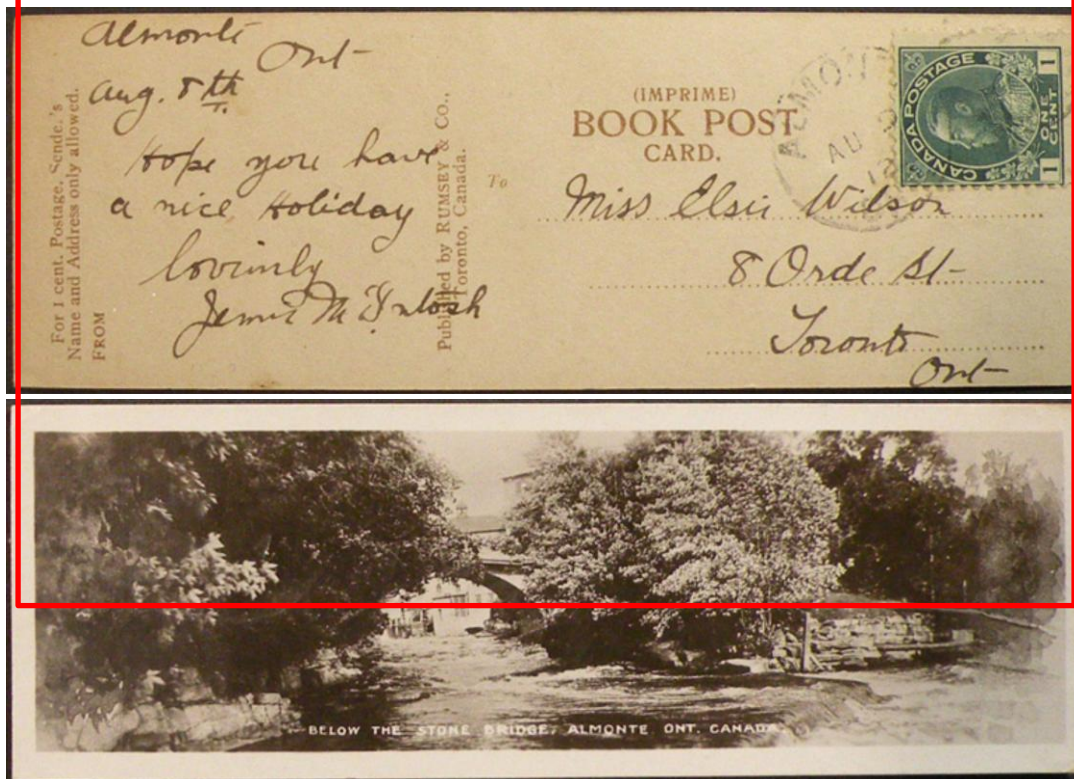 Almonte
Ont
Aug. 8th
Hope you have
a nice Holiday
lovinly
Jennie McIntosh
For 1 cent. Postage, Sende.'s
Name and Address only allowed.
FROM
Published by RUMSEY & Co.,
Toronto, Canada.
(IMPRIME)
BOOK POST
CARD.
To
Miss Elsie Wilson
8 Orde St
Toronto
Ont
ALMON
AU
CANADA POSTAGE
1 ONE CENT 1
BELOW THE STONE BRIDGE, ALMONTE ONT. CANADA.